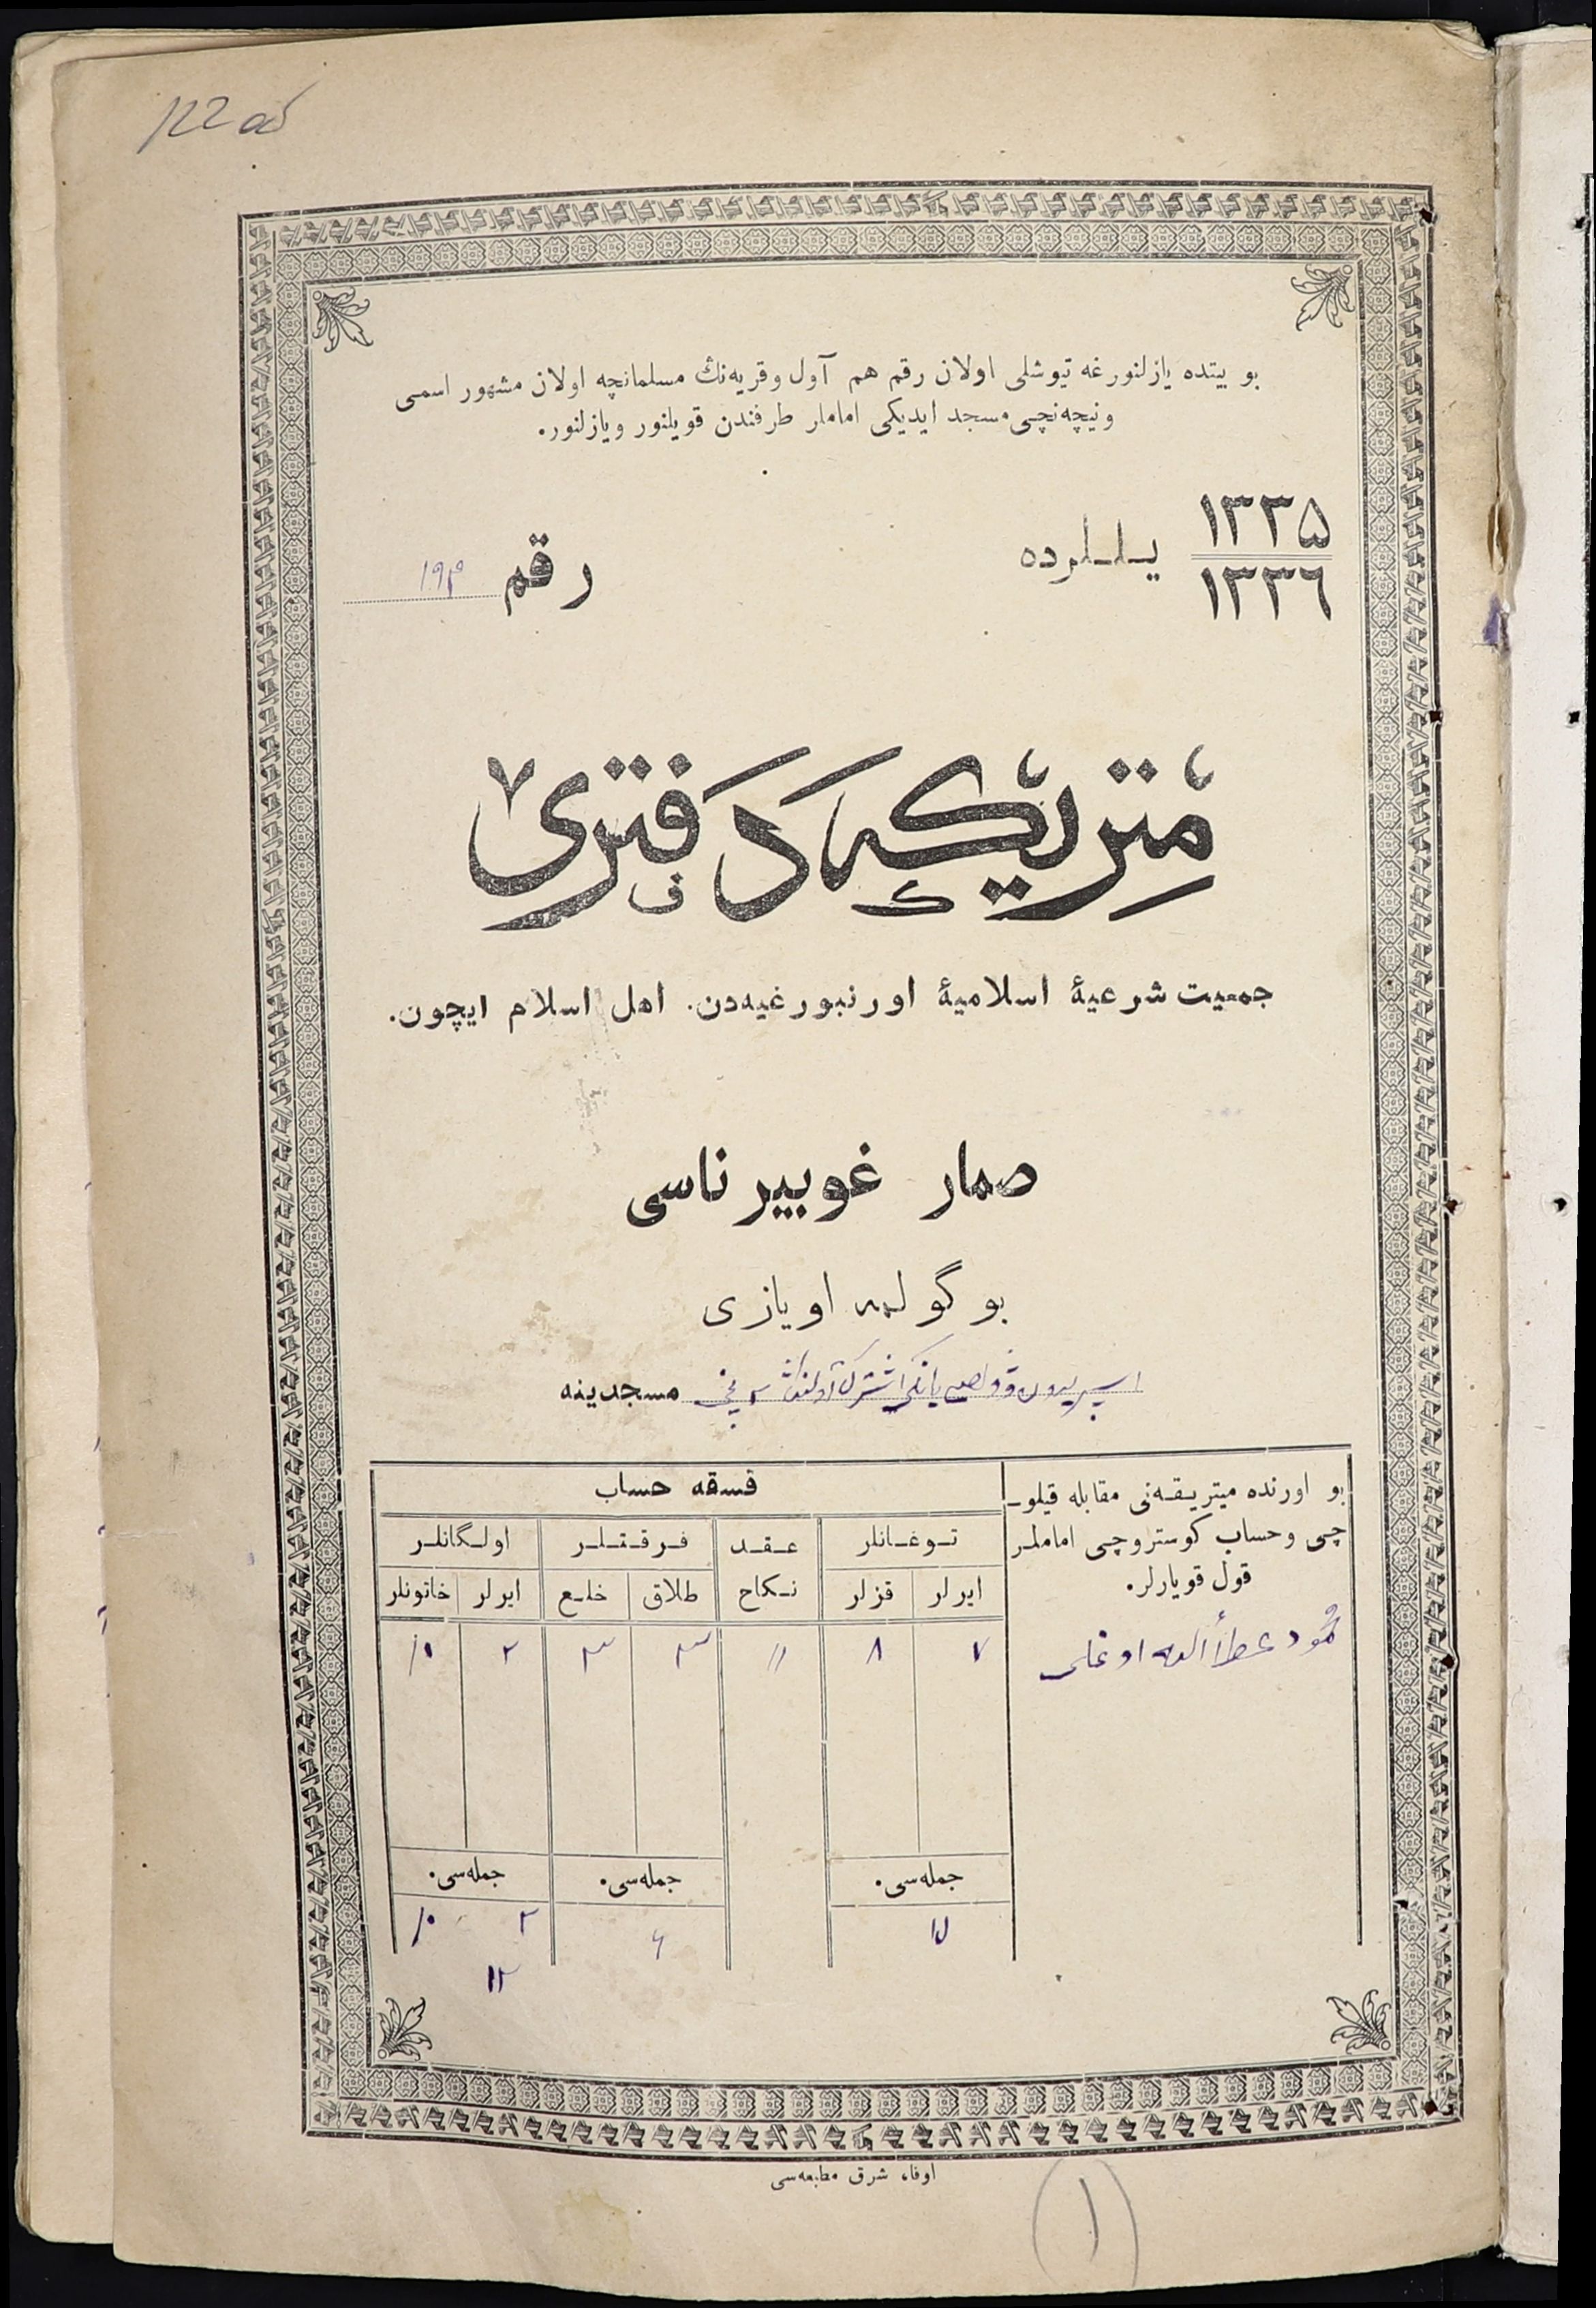 بو بیتده یازلنورغه تیوشلی اولان رقم هم آول وقریه‌نڭ مسلمانچه اولان مشهور اسمی
ونیچه‌نچی مسجد ایدیکی اماملر طرفندن قویلنور ویازلنور.
۱۳۳۵
۱۳۳٦
یـلـلرده
رقم ۱۹۳
مترىكه دفترى
جمعیت شرعیهٔ اسلامیهٔ اورنبورغیه‌دن. اهل اسلام ایچون.
صمار غوبیرناسی
بوگولمه اویازی
مسجدینه
بو اورنده میتریـقـه‌نی مقابله قیلوـ
چی وحساب کوستروچی اماملـر
قول قویارلر.
محمود عطأالله اوغلی
قسقه حساب
تـوغـانلر عـقـد فـرقـتـلـر اولـگانلـر
ایرلر قزلر نـکاح طلاق خلـع ایرلر خاتونلر
۷ ۸ // ۳ ۳ ۲ ۱۰
جمله‌سی. جمله‌سی. جمله‌سی.
۱۵ ۶ ۲ ۱۰
۱۲
اوفا، شرق مطبعه‌سی
۱